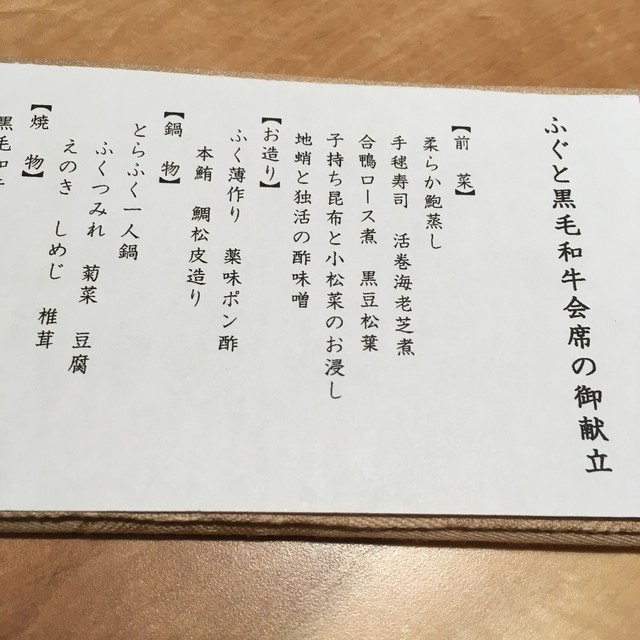 ふぐと黒毛和牛会席の御献立
【前菜】
柔らか鮑蒸し
手毬寿司 活巻海老芝煮
合鴨ロース煮 黒豆松葉
子持ち昆布と小松菜のお浸し
地蛸と独活の酢味噌
【お造り】
ふく薄作り 薬味ポン酢
本鮪 鯛松皮造り
【鍋物】
とらふく一人鍋
ふくつみれ 菊菜 豆腐
えのき しめじ 椎茸
【焼物】
黒毛和牛